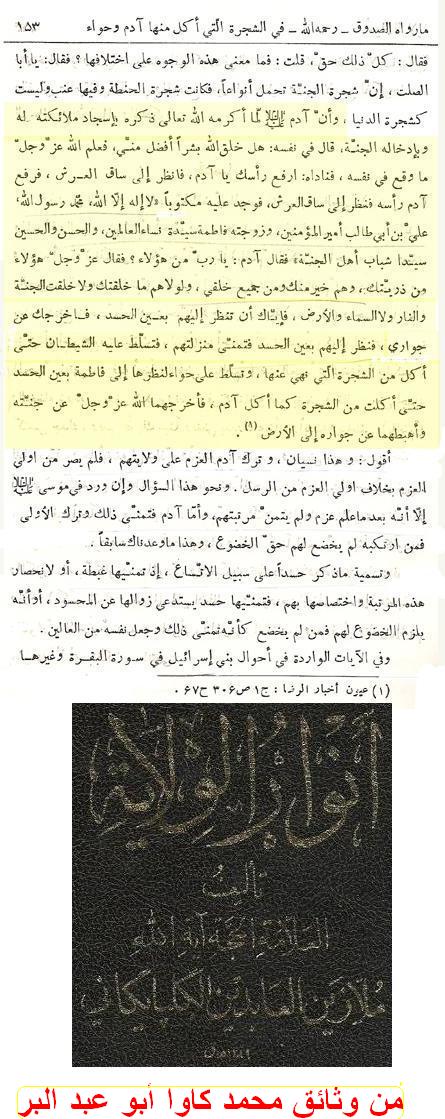 ما رواه الصدوق ـ رحمه الله ـ في الشجرة الّتي أكل منها آدم وحواء ١٥٣
فقال : كلّ ذلك حقّ ، قلت : فما معنى هذه الوجوه على اختلافها ؟ فقال : يا أبا
الصلت ، إنّ شجرة الجنّة تحمل أنواعاً ، فكانت شجرة الحنطة وفيها عنب وليست
كشجرة الدنيا ، وأنّ آدم عليه السلام لمّا أكرمه الله تعالى ذكره بإسجاد ملائكته له
وبإدخاله الجنّة، قال في نفسه: هل خلق الله بشراً أفضل منّي، فعلم الله عزّ وجلّ
ما وقع في نفسه ، فناداه: ارفع رأسك يا آدم ، فانظر إلى ساق العرش ، فرفع
آدم رأسه فنظر إلى ساق العرش، فوجد عليه مكتوباً «لا إله إلّا الله، محمّد رسول الله،
عليّ بن أبي طالب أمير المؤمنين، وزوجته فاطمة سيّدة نساء العالمين، والحسن والحسين
سيّدا شباب أهل الجنّة» فقال آدم : يا ربّ من هؤلاء ؟ فقال عزّ وجلّ هؤلاء
من ذريّتك ، وهم خير منك ومن جميع خلقي ، ولولاهم ما خلقتك ولا خلقت الجنّة
والنار ولا السماء والأرض ، فإيّاك أن تنظر إليهم بعين الحسد ، فاخرجك عن
جواري ، فنظر إليهم بعين الحسد فتمنّى منزلتهم ، فتسلّط عليه الشيطان حتّى
أكل من الشجرة الّتي نهي عنها ، وتسلط على حواء لنظرها إلى فاطمة بعين الحسد
حتّى أكلت من الشجرة كما أكل آدم ، فأخرجهما الله عزّ وجلّ عن جنّته
وأهبطهما عن جواره إلى الأرض (١) .
أقول : وهذا نسيان ، وترك آدم العزم على ولايتهم ، فلم يصر من اولي
العزم بخلاف اولي العزم من الرسل . ونحو هذا السؤال وإن ورد في موسى عليه السلام
إلّا أنّه بعد ما علم عزم ولم يتمنّ مرتبتهم، وأمّا آدم فتمنّى ذلك وترك الأولى
فمن ارتكبه لم يخضع لهم حقّ الخضوع ، وهذا ما وعدناك سابقاً .
وتسمية ما ذكر حسداً على سبيل الاتّساع ، إذ تمنّيها غبطة ، أو لانحصار
هذه المرتبة واختصاصها بهم ، فتمنّيها حسد يستدعي زوالها عن المحسود ، أو أنّه
يلزم الخضوع لهم فمن لم يخضع كأنّه تمنّى ذلك وجعل نفسه من العالين .
وفي الآيات الواردة في أحوال بني إسرائيل في سورة البقرة وغيرها
(١) عيون أخبار الرضا : ج١ ص٣٠٦ ح٦٧ .
أنوار الولاية
تأليف
العلامة الحجة آية الله
ملا زين العابدين الكلپايكاني
من وثائق محمد كاوا أبو عبد البر